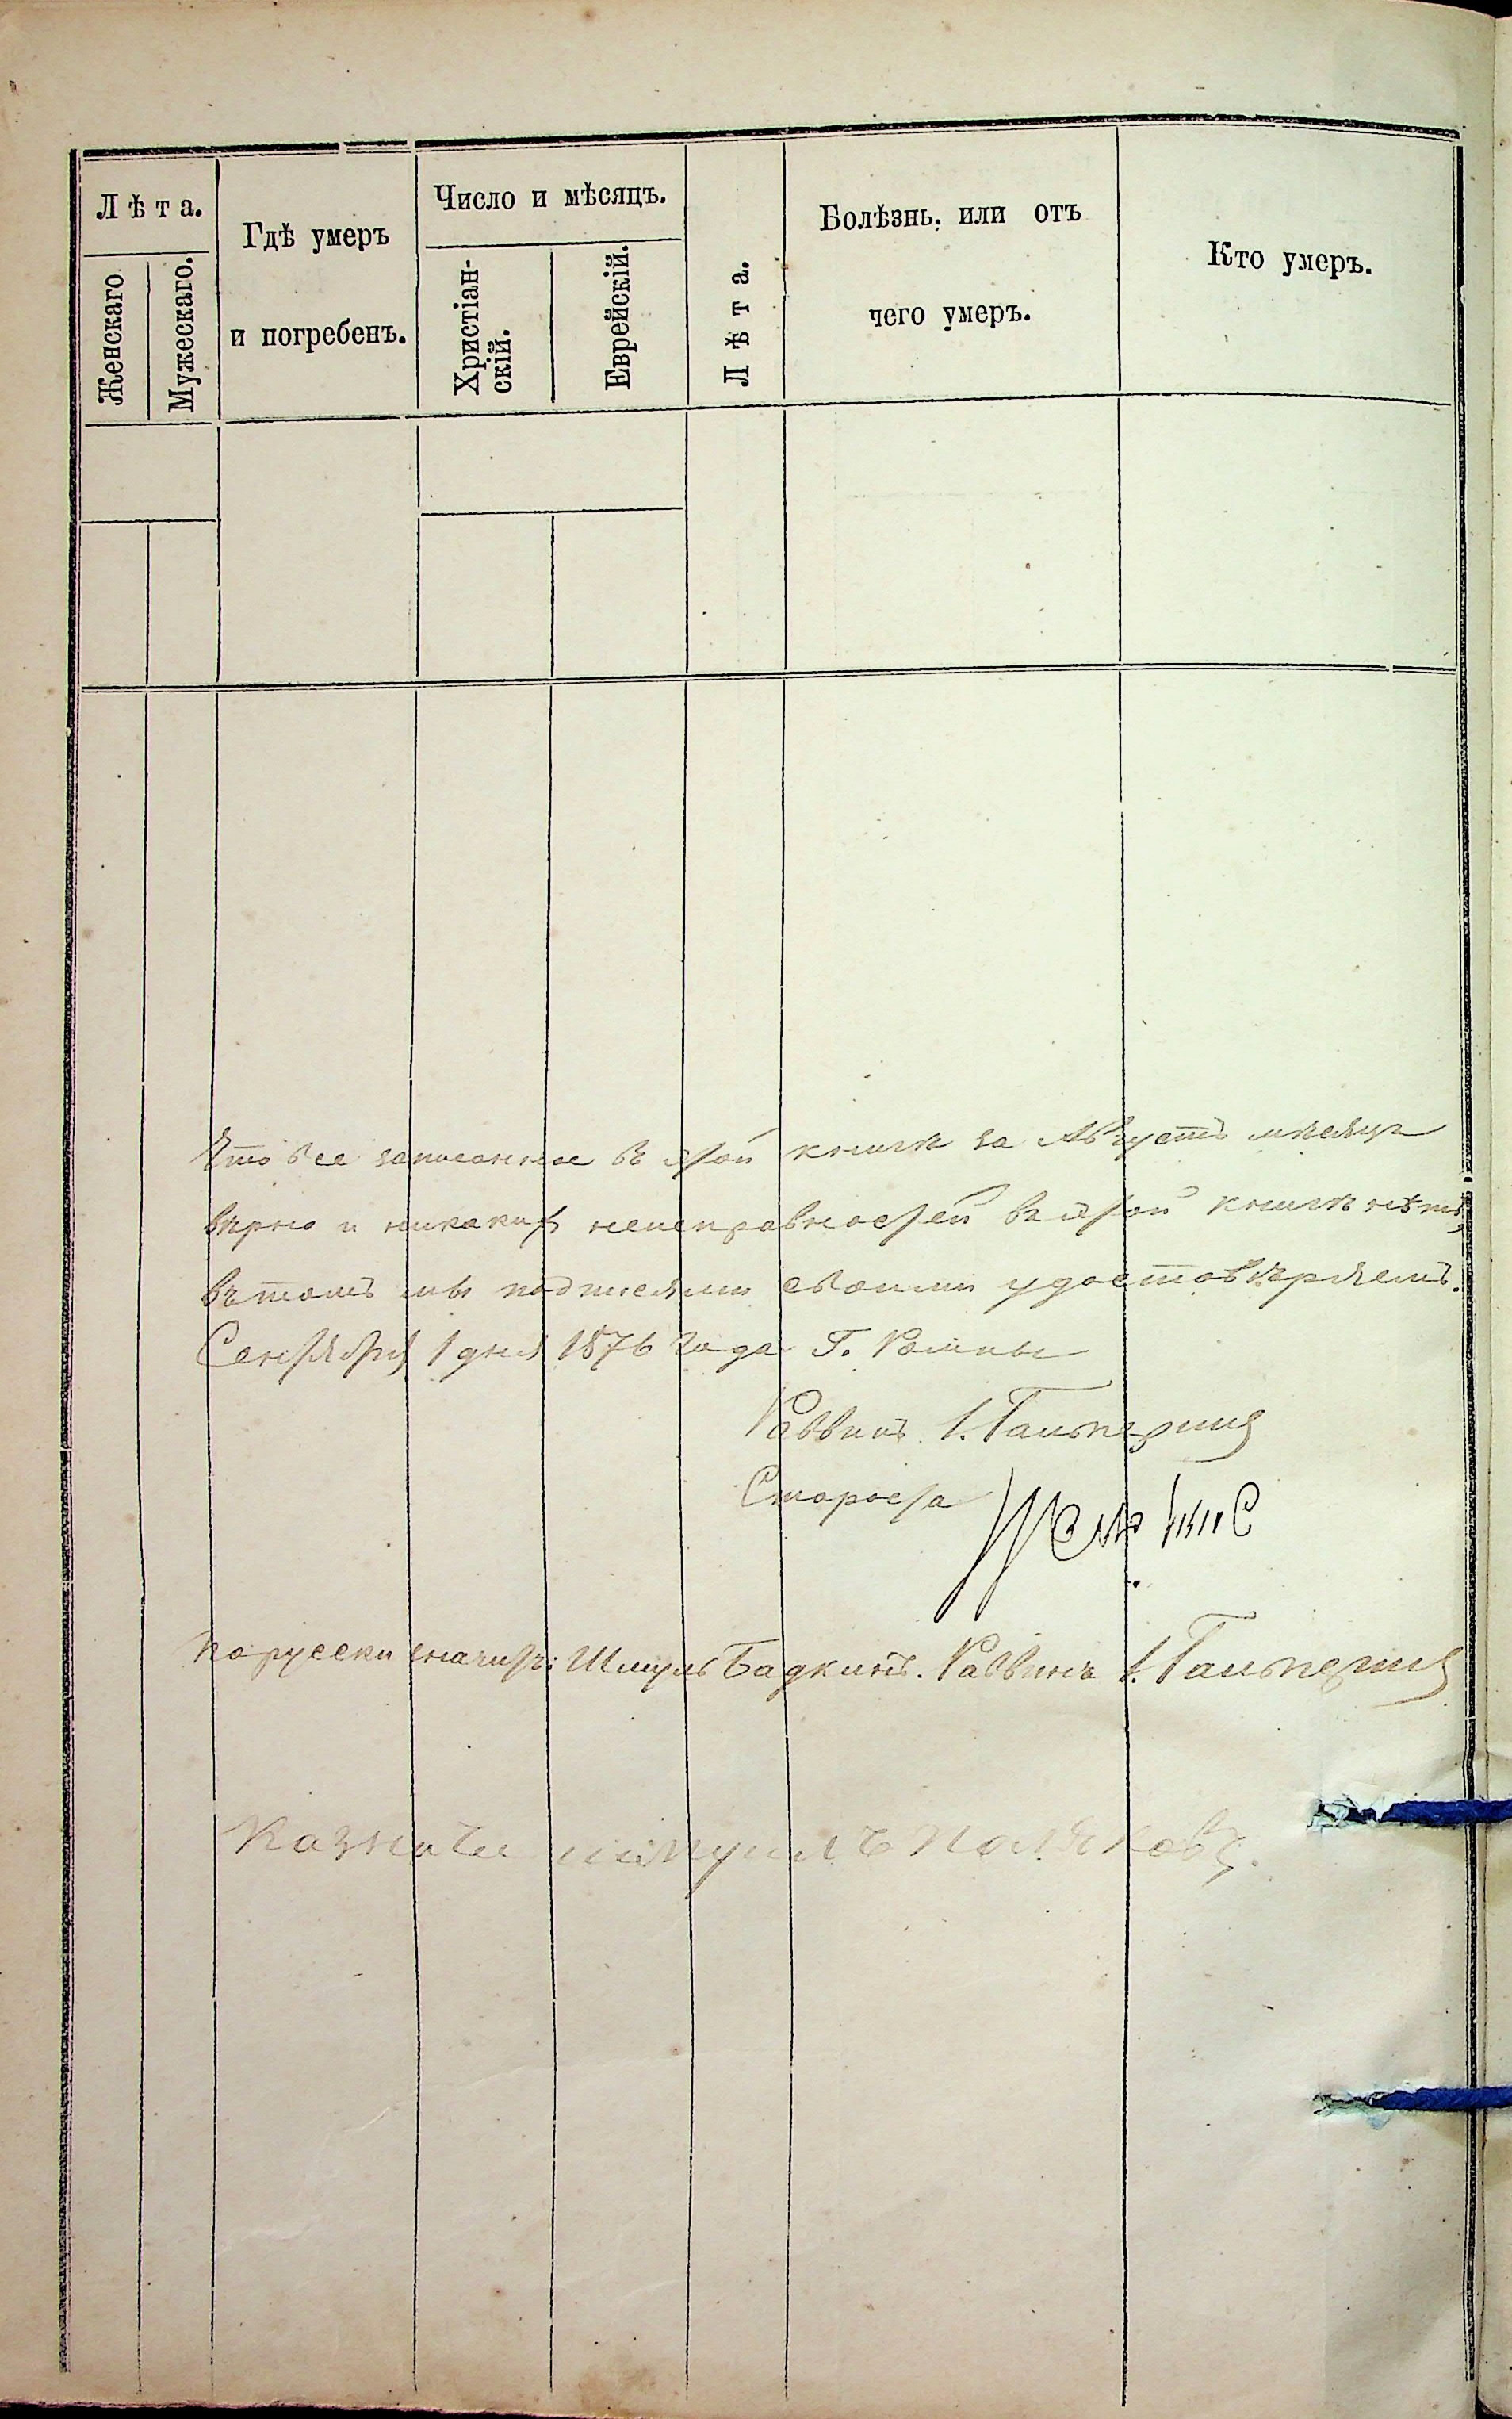 Лѣта.
Женскаго
Мужескаго.
Гдѣ умеръ
и погребенъ.
Число и мѣсяцъ.
Христіан-
скій.
Еврейскій.
Лѣта.
Болѣзнь, или отъ
чего умеръ.
Кто умеръ.
Что все записанное въ этой книгѣ за Августъ мѣсяцъ
вѣрно и никакихъ неисправностей въ этой книгѣ нѣтъ,
въ томъ мы подписями своими удостовѣряемъ.
Сентября 1 дня 1876 года Г. Ромны
Раввинъ І. Гальперинъ
Староста
по русски значитъ: Шмуль Бадкинъ. Раввинъ І. Гальперинъ
Казначеи Поляковъ.